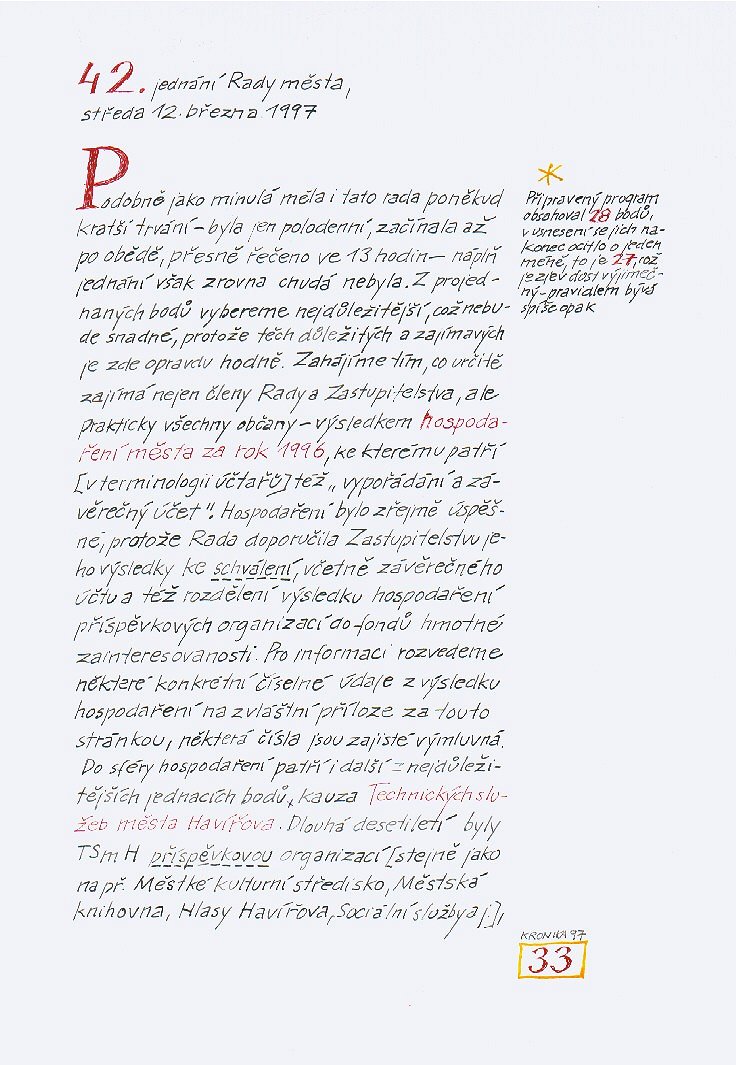 42. jednání Rady města,
středa 12. března 1997
Podobně jako minulá měla i tato rada poněkud
kratší trvání – byla jen polodenní, začínala až
po obědě, přesně řečeno ve 13 hodin – náplň
jednání však zrovna chudá nebyla. Z projed-
naných bodů vybereme nejdůležitější, což nebu-
de snadné, protože těch důležitých a zajímavých
je zde opravdu hodně. Zahájíme tím, co určitě
zajímá nejen členy Rady a Zastupitelstva, ale
prakticky všechny občany – výsledkem hospoda-
ření města za rok 1996, ke kterému patří
[v terminologii účtařů] též „vypořádání a zá-
věrečný účet". Hospodaření bylo zřejmě úspěš-
né, protože Rada doporučila Zastupitelstvu je-
ho výsledky ke schválení, včetně závěrečného
účtu a též rozdělení výsledku hospodaření
příspěvkových organizací do fondů hmotné
zainteresovanosti. Pro informaci rozvedeme
některé konkrétní číselné údaje z výsledku
hospodaření na zvláštní příloze za touto
stránkou, některá čísla jsou zajisté výmluvná.
Do sféry hospodaření patří i další z nejdůleži-
tějších jednacích bodů, kauza Technických slu-
žeb města Havířova. Dlouhá desetiletí byly
TSmH příspěvkovou organizací [stejně jako
např. Městké kulturní středisko, Městská
knihovna, Hlasy Havířova, Sociální služby aj],
*
Připravený program
obsahoval 28 bodů,
v usnesení se jich na-
konec ocitlo o jeden
méně, to je 27, což
je zjev dost výjimeč-
ný – pravidlem bývá
spíše opak
KRONIKA 97
33